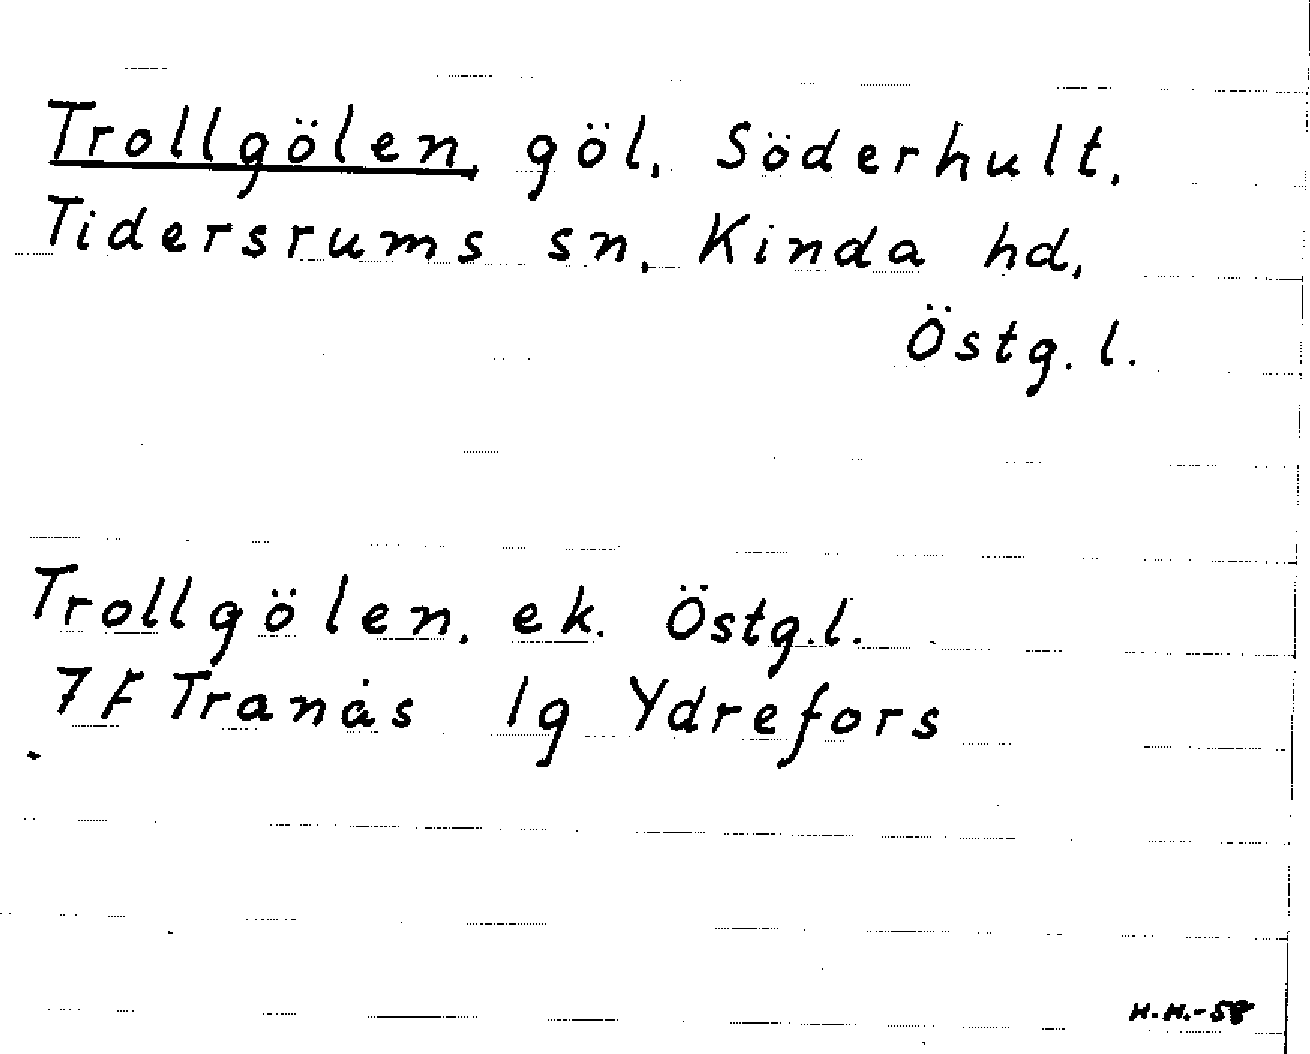 Trollgölen, göl, Söderhult,
Tidersrums sn, Kinda hd,
Östg. l.
Trollgölen, ek. Östg.l.
7F Tranås 1g Ydrefors
H.H.-58